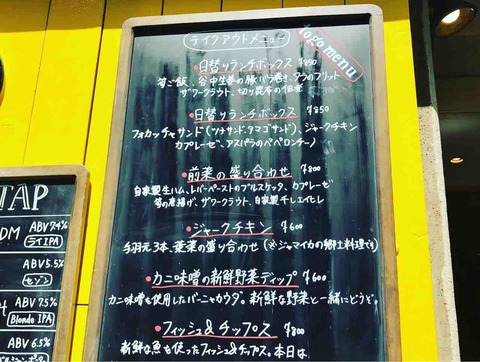 テイクアウトメニュー
togo menu
・日替りランチボックス ¥850
筍ご飯、谷中生姜の豚バラ巻き、タラのフリット
ザワークラウト、切り昆布の佃煮
・日替りランチボックス ¥850
フォカッチャサンド(ツナサンド、タマゴサンド)、ジャークチキン
カプレーゼ、アスパラのペペロンチーノ
・前菜の盛り合わせ ¥800
自家製生ハム、レバーペーストのブルスケッタ、カプレーゼ
筍の唐揚げ、ザワークラウト、自家製チレエイヒレ
・ジャークチキン ¥600
手羽元3本、葉菜の盛り合わせ(※ジャマイカの郷土料理です)
・カニ味噌の新鮮野菜ディップ ¥600
カニ味噌を使用したバーニャカウダ。新鮮な野菜と一緒にどうぞ。
・フィッシュ&チップス ¥800
新鮮な魚を使ったフィッシュ&チップス。本日は
TAP
ABV7.4%
ライIPA
ABV5.5%
セゾン
ABV7.5%
Blonde IPA
ABV6.5%